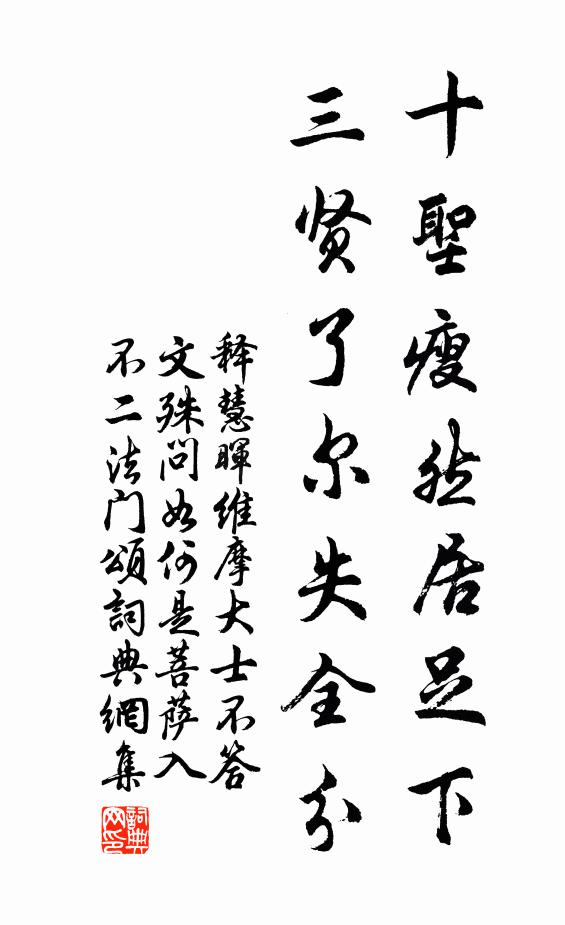 十聖瘦然居足下
三贤了尔失全分
释慧暉维摩大士不答
文殊問如何是菩萨入
不二法门頌詞典網集
詞典
网印